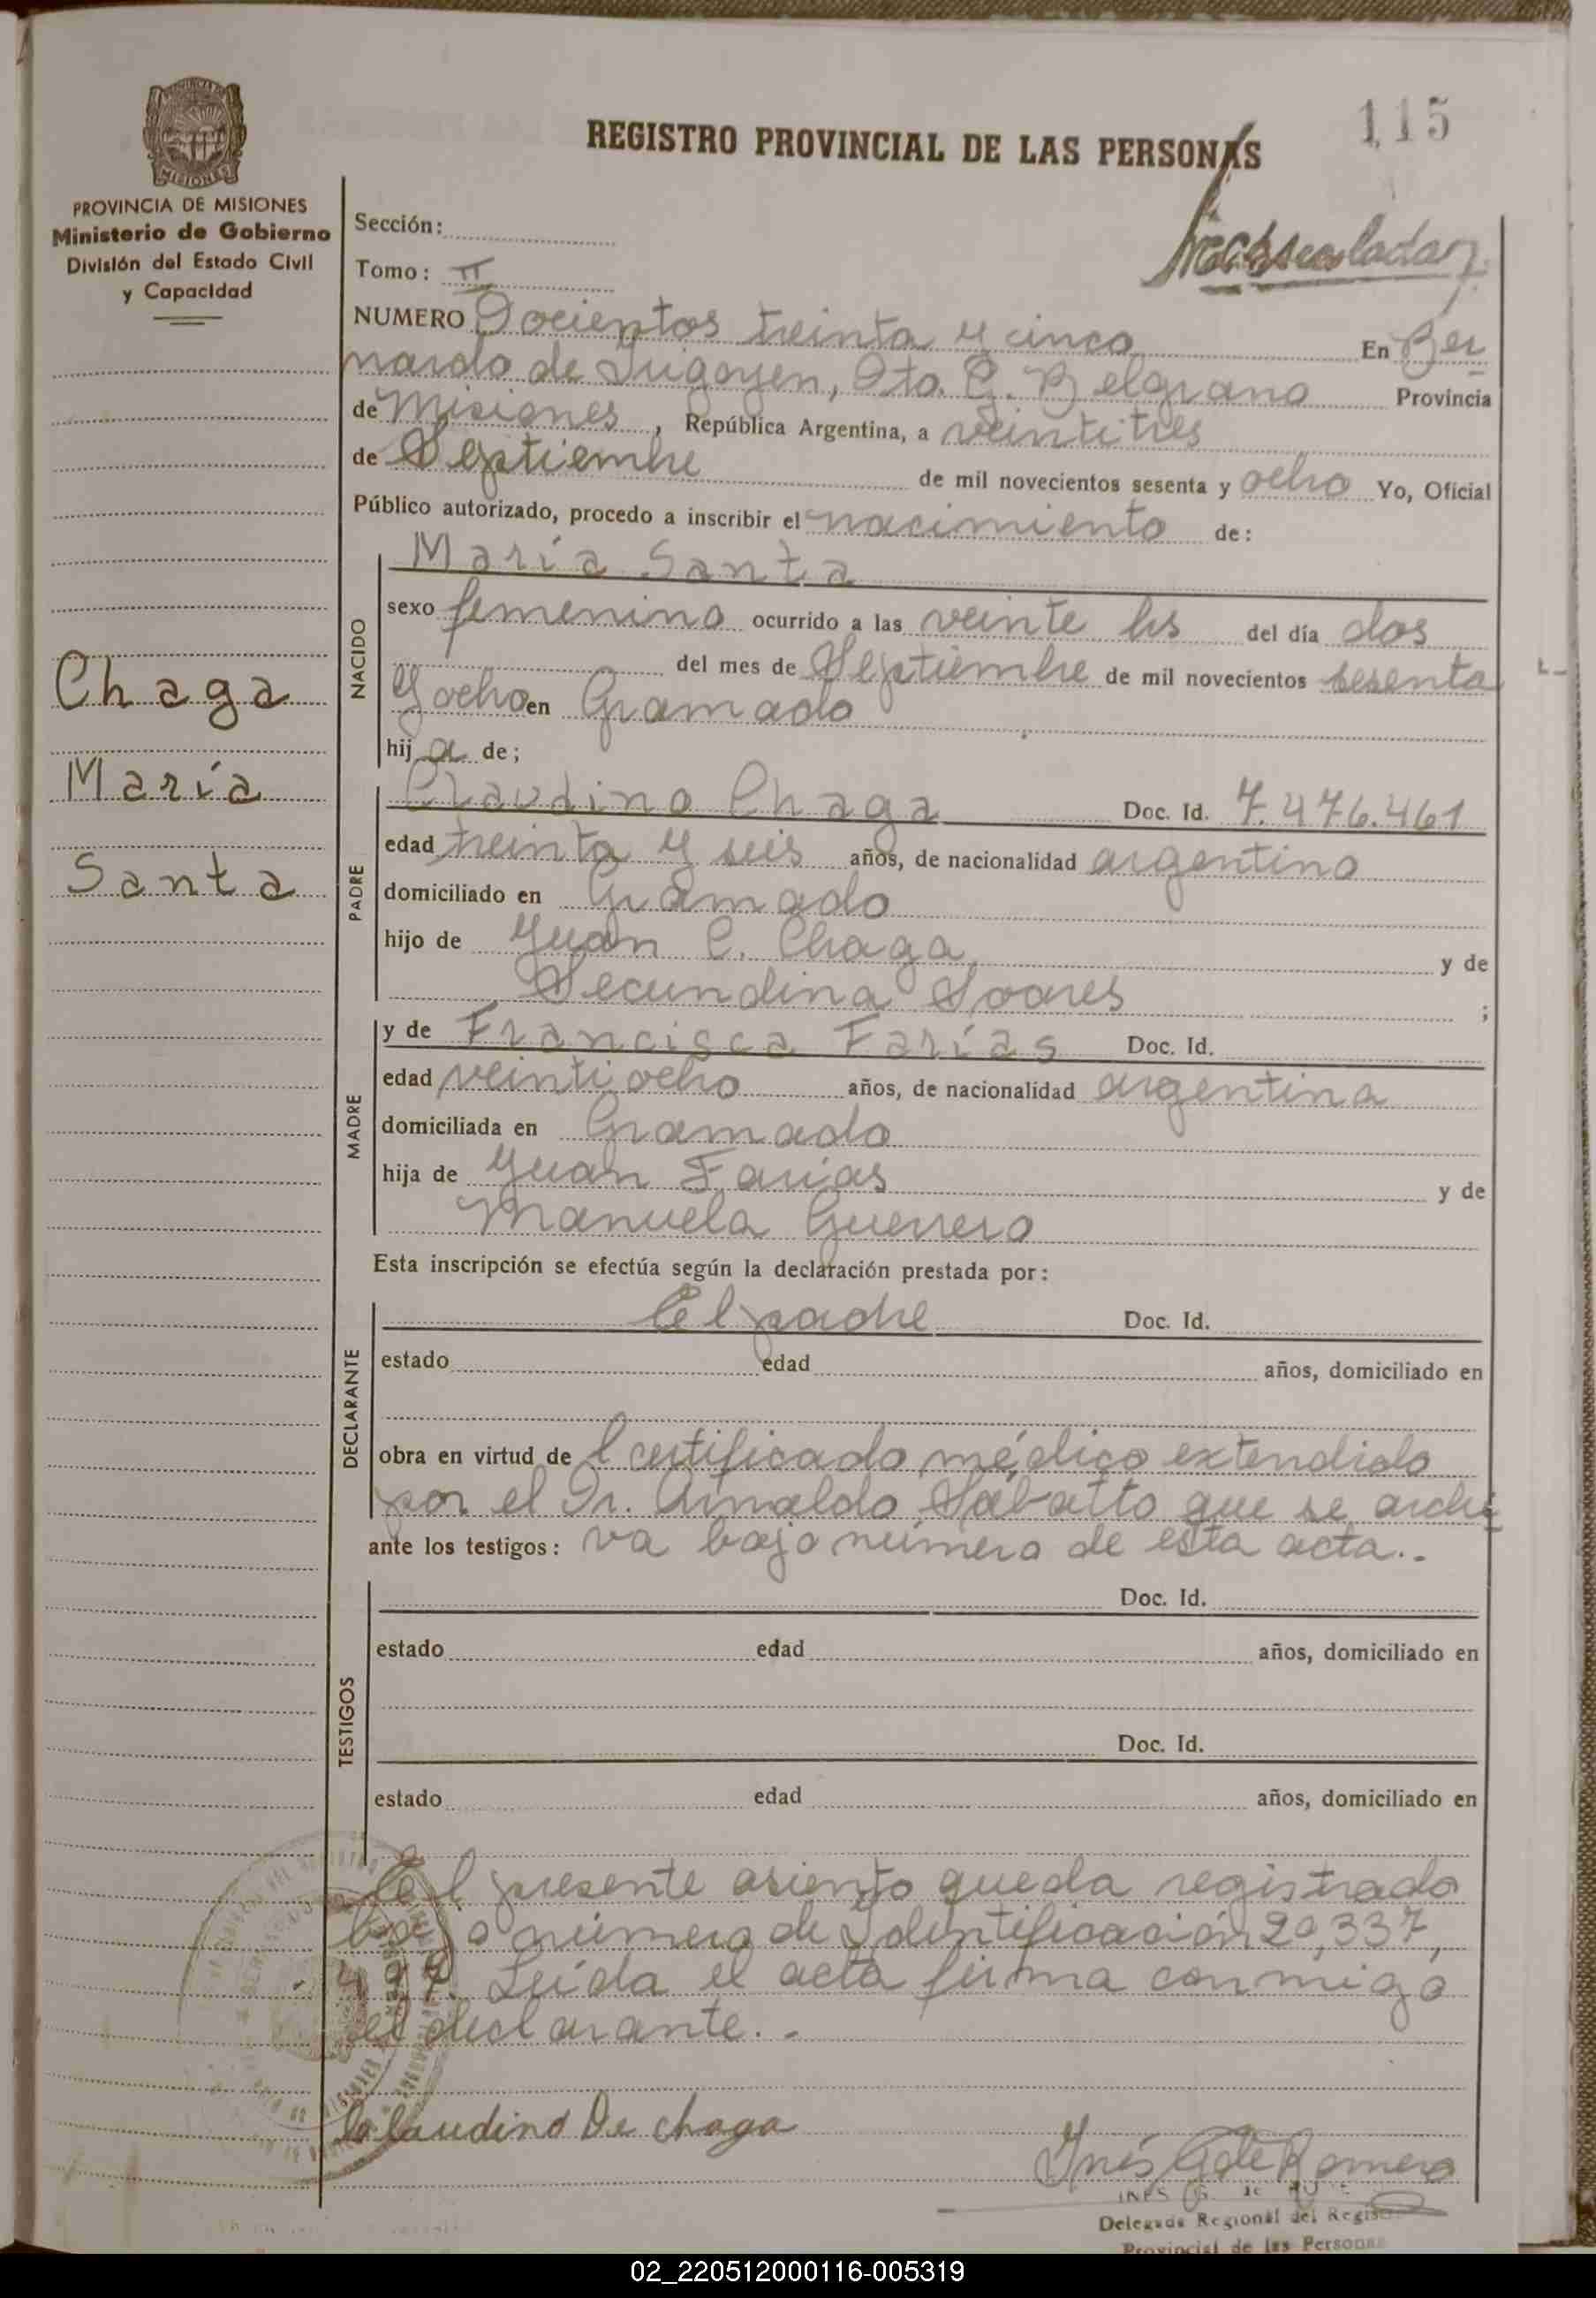 115
REGISTRO PROVINCIAL DE LAS PERSONAS
MISIONES
PROVINCIA DE MISIONES
Ministerio de Gobierno
División del Estado Civil
y Capacidad
Chaga
María
Santa
Sección:
Tomo: II
NUMERO Docientos treinta y cinco En Ber
nardo de Irigoyen, Dto. G. Belgrano Provincia
de Misiones, República Argentina, a veintitres
de Septiembre de mil novecientos sesenta y ocho Yo, Oficial
Público autorizado, procedo a inscribir el nacimiento de:
NACIDO
María Santa
sexo femenino ocurrido a las veinte hs del día dos
del mes de Septiembre de mil novecientos sesenta
y ocho en Gramado
hija de;
PADRE
Claudino Chaga Doc. Id. 7.476.461
edad treinta y seis años, de nacionalidad argentino
domiciliado en Gramado
hijo de Juan C. Chaga y de
Secundina Soares ;
MADRE
y de Francisca Farías Doc. Id.
edad veintiocho años, de nacionalidad argentina
domiciliada en Gramado
hija de Juan Farías y de
Manuela Guerrero
Esta inscripción se efectúa según la declaración prestada por:
DECLARANTE
El padre Doc. Id.
estado edad años, domiciliado en
obra en virtud de l certificado médico extendido
por el Dr. Arnaldo Sabatto que se archi
ante los testigos: va bajo número de esta acta..
TESTIGOS
Doc. Id.
estado edad años, domiciliado en
Doc. Id.
estado edad años, domiciliado en
El presente asiento queda registrado
bajo número de Identificación 20,337,
497. Leída el acta firma conmigo
el declarante.-
Claudino De chaga
Inés G de Romero
INES G. de
Delegada Regional del Regis
Provincial de las Personas
02_220512000116-005319